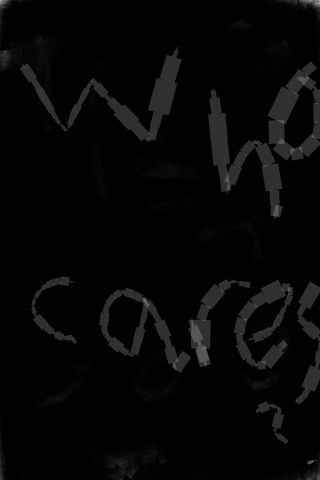 who
cares
?